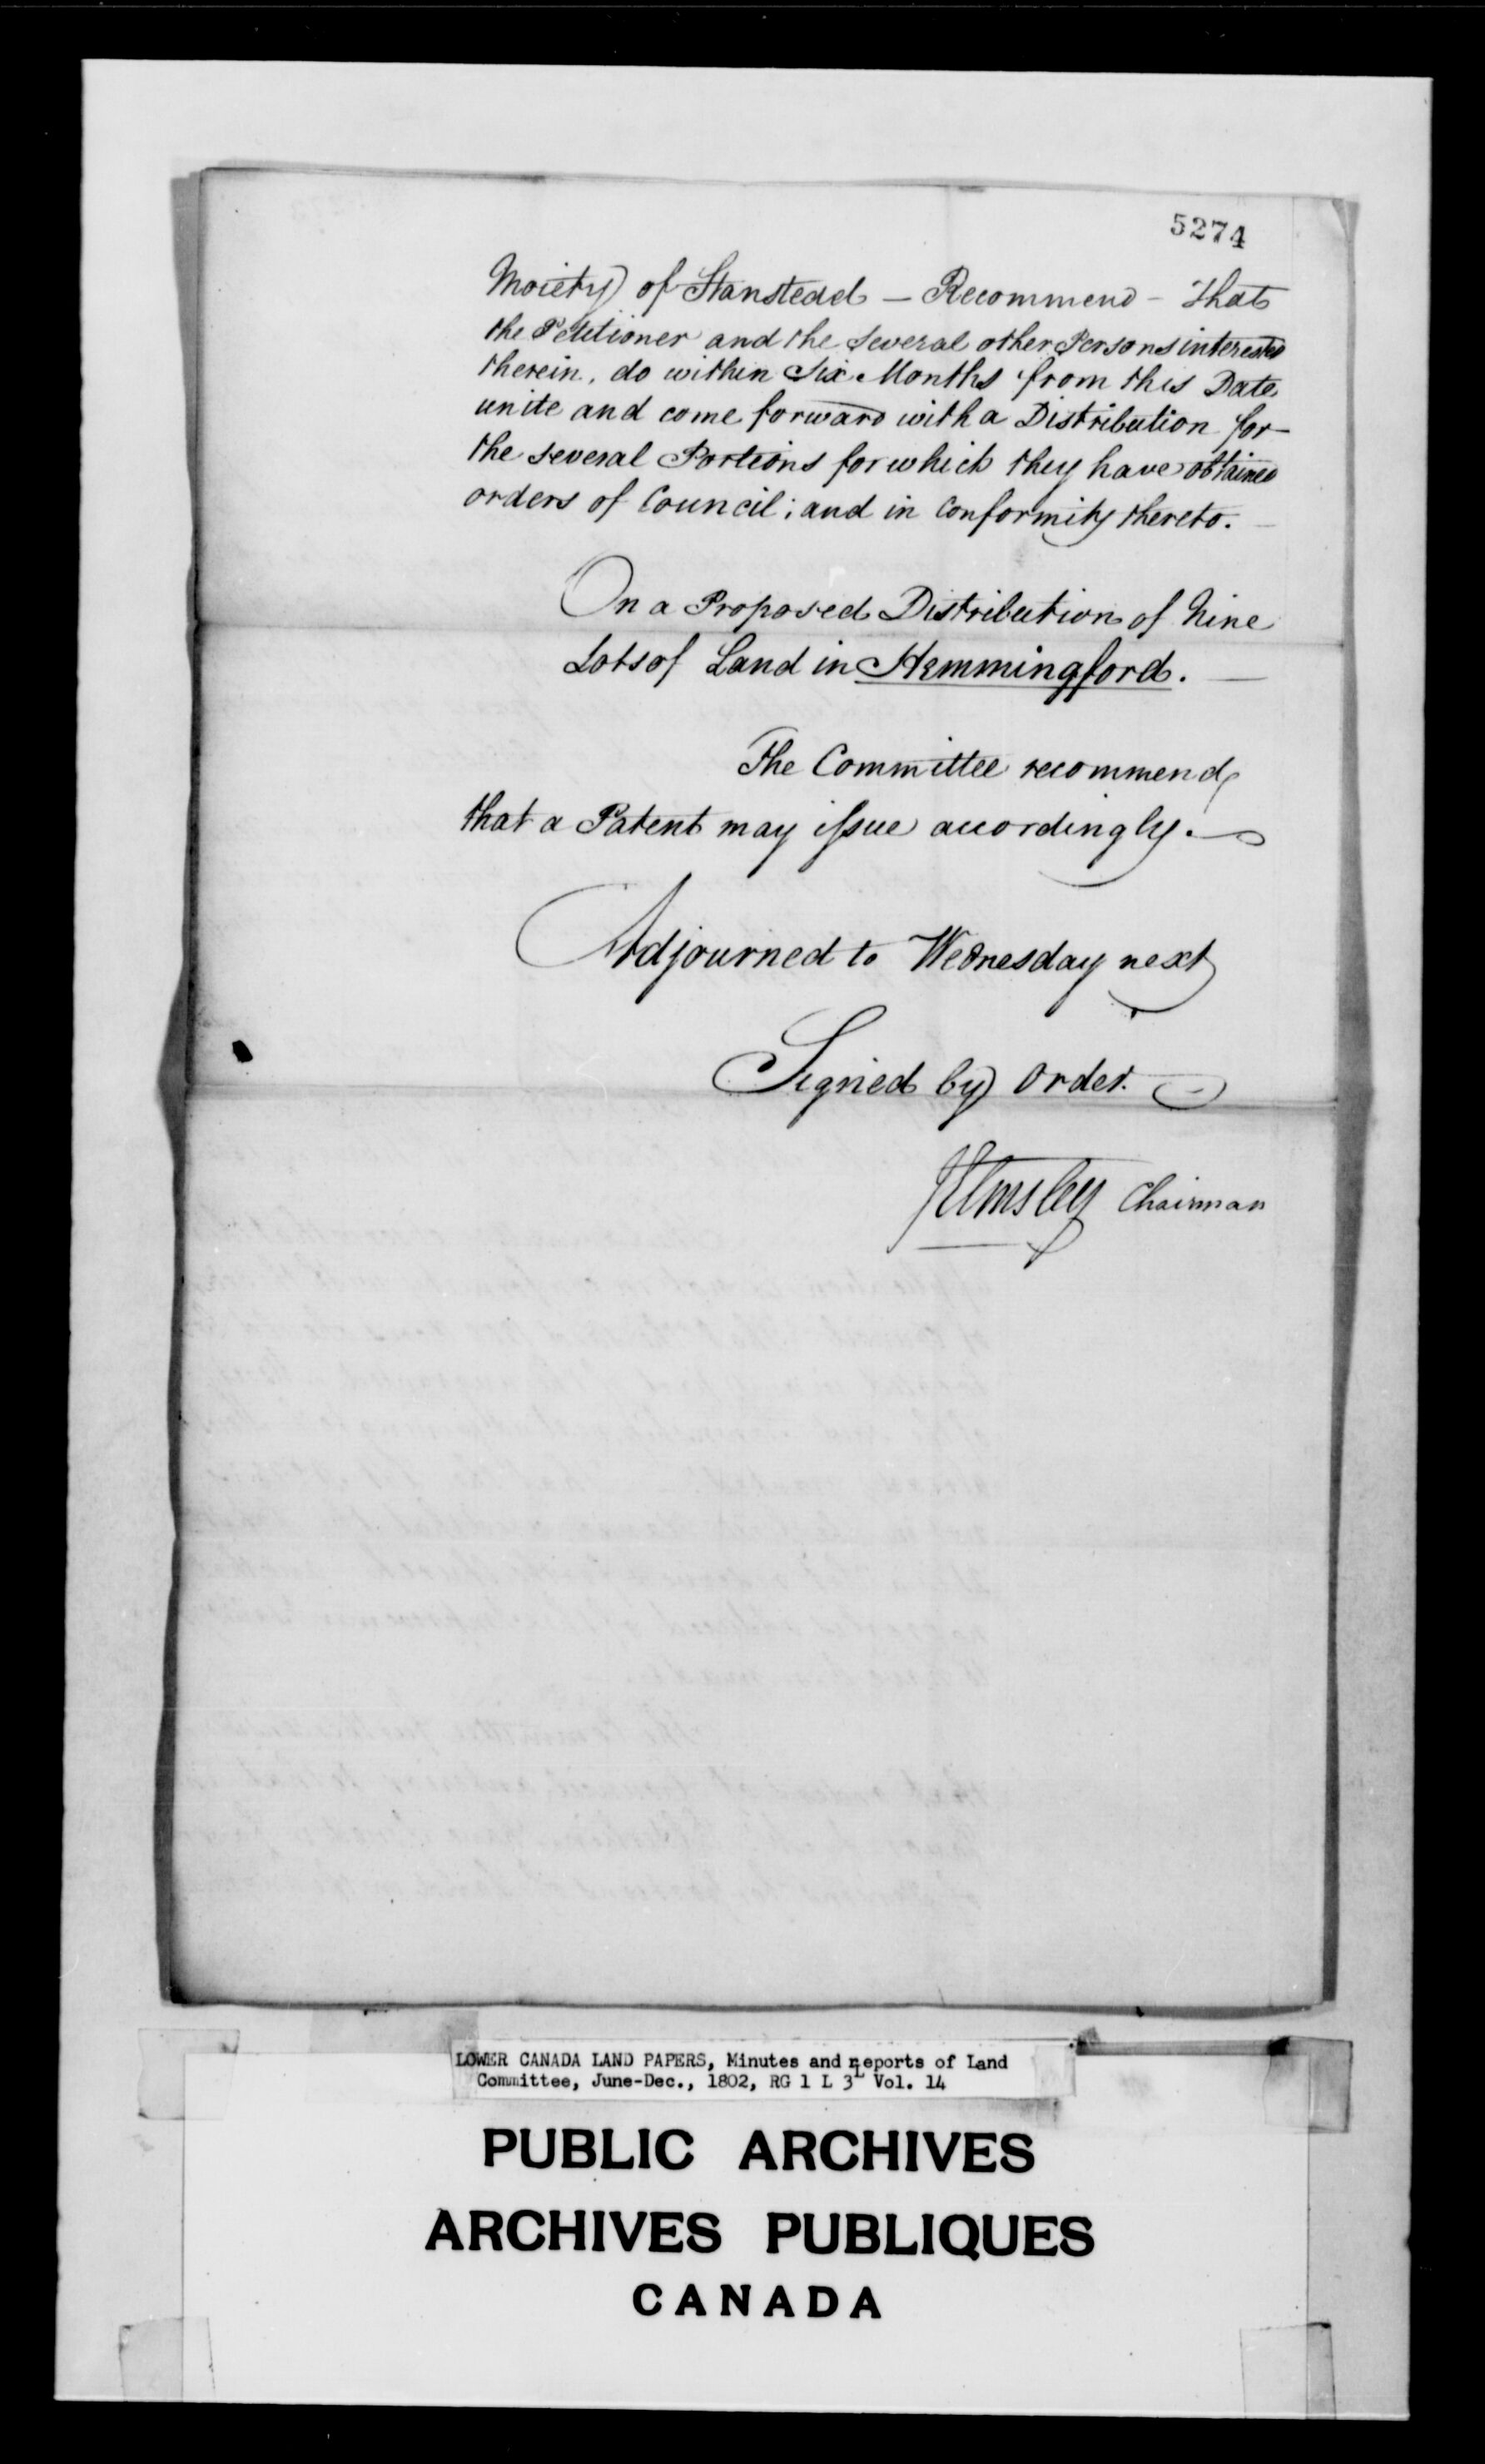 5274
Moiety of Stanstead — Recommend – that
the Petitioner and the several other Persons interested
therein, do within Six Months from this Date
unite and come forward with a Distribution for
the several Portions for which they have obtained
orders of Council; and in Conformity thereto. —
On a Proposed Distribution of Nine
Lots of Land in Hemmingford. —
The Committee recommend
that a Patent may issue accordingly. —
Adjourned to Wednesday next
Signed by order.
J Elmsley Chairman
LOWER CANADA LAND PAPERS, Minutes and Reports of Land
Committee, June-Dec., 1802, RG 1 L 3L Vol. 14
PUBLIC ARCHIVES
ARCHIVES PUBLIQUES
CANADA